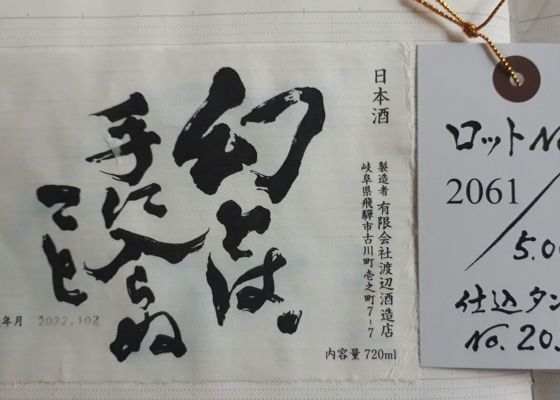 日本酒
製造者 有限会社渡辺酒造店
岐阜県飛騨市古川町壱之町7-7
幻とは、
手に入らぬ
こと
年月 2022.10Z
内容量 720ml
ロット No
2061/5.00
仕込タン
No. 20